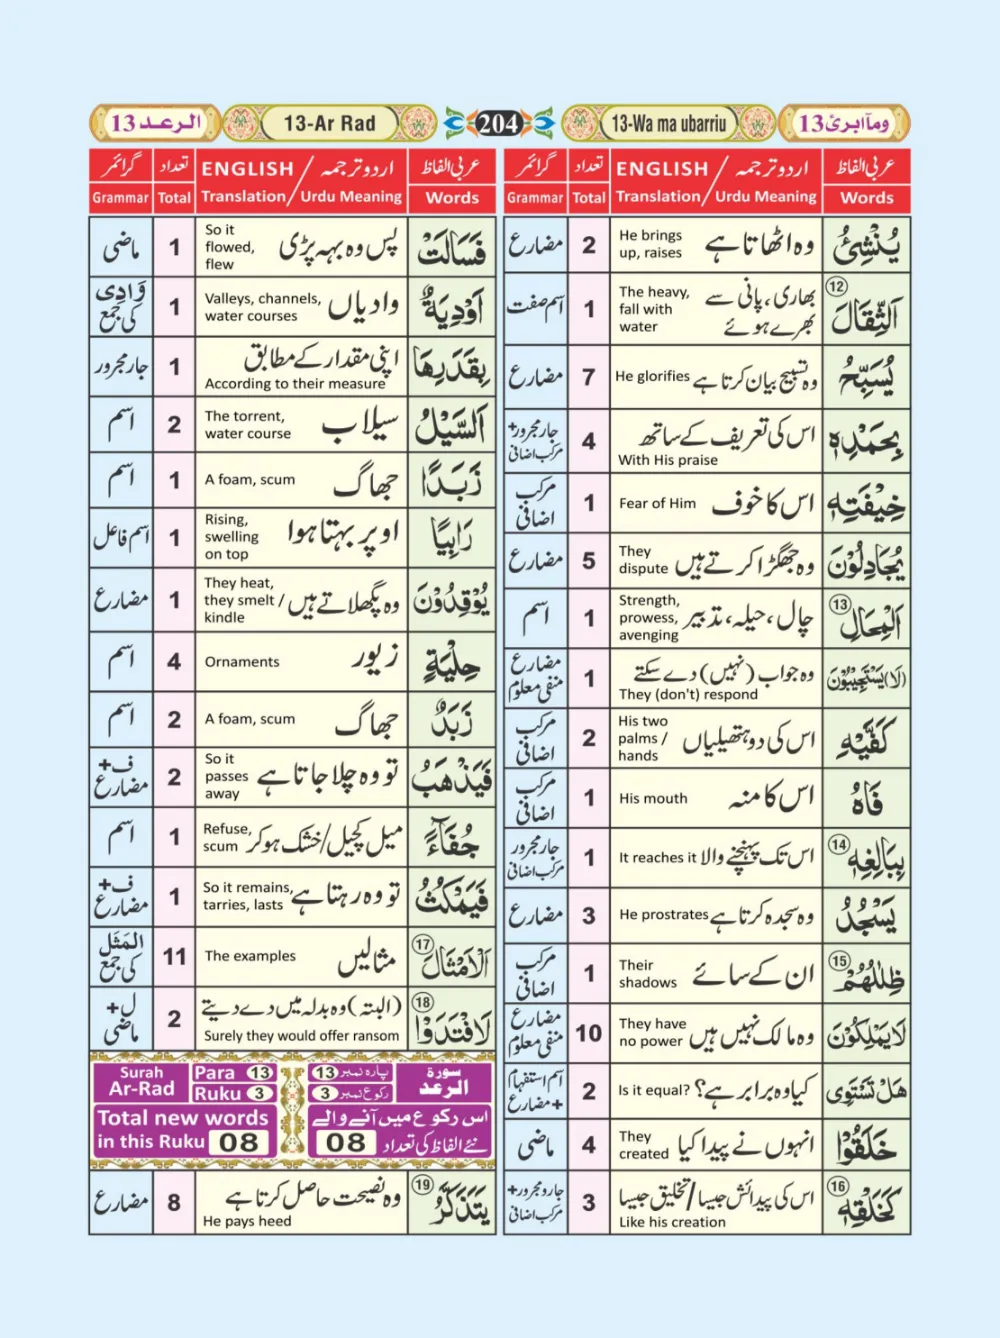 وما ابرئ 13
13-Wa ma ubarriu
204
13-Ar Rad
الرعد 13
عربی الفاظ
ENGLISH / اردو ترجمہ
تعداد
گرائمر
Words
Translation / Urdu Meaning
Total
Grammar
يُنْشِئُ
وہ اٹھاتا ہے
He brings
up, raises
2
مضارع
⑫ الثِّقَالَ
بھاری، پانی سے
بھرے ہوئے
The heavy,
fall with
water
1
اسم صفت
يُسَبِّحُ
وہ تسبیح بیان کرتا ہے
He glorifies
7
مضارع
بِحَمْدِهٖ
اس کی تعریف کے ساتھ
With His praise
4
جار مجرور+
مرکب اضافی
خِيْفَتِهٖ
اس کا خوف
Fear of Him
1
مرکب
اضافی
يُجَادِلُوْنَ
وہ جھگڑا کرتے ہیں
They
dispute
5
مضارع
⑬ الْمِحَالِ
چال، حیلہ، تدبیر
Strength,
prowess,
avenging
1
اسم
(لَا) يَسْتَجِيْبُوْنَ
وہ جواب (نہیں) دے سکتے
They (don't) respond
1
مضارع
منفی معلوم
كَفَّيْهِ
اس کی دو ہتھیلیاں
His two
palms /
hands
2
مرکب
اضافی
فَاهُ
اس کا منہ
His mouth
1
مرکب
اضافی
⑭ بِبَالِغِهٖ
اس تک پہنچنے والا
It reaches it
1
جار مجرور
مرکب اضافی
يَسْجُدُ
وہ سجدہ کرتا ہے
He prostrates
3
مضارع
⑮ ظِلٰلُهُمْ
ان کے سائے
Their
shadows
1
مرکب
اضافی
لَا يَمْلِكُوْنَ
وہ مالک نہیں ہیں
They have
no power
10
مضارع
منفی معلوم
هَلْ تَسْتَوِى
کیا وہ برابر ہے؟
Is it equal?
2
اسم استفہام
+ مضارع
خَلَقُوْا
انہوں نے پیدا کیا
They
created
4
ماضی
⑯ كَخَلْقِهٖ
اس کی پیدائش جیسا/تخلیق جیسا
Like his creation
3
جار و مجرور+
مرکب اضافی
عربی الفاظ
ENGLISH / اردو ترجمہ
تعداد
گرائمر
Words
Translation / Urdu Meaning
Total
Grammar
فَسَالَتْ
پس وہ بہہ پڑی
So it
flowed,
flew
1
ماضی
اَوْدِيَةٌ
وادیاں
Valleys, channels,
water courses
1
وَادِی
کی جمع
بِقَدَرِهَا
اپنی مقدار کے مطابق
According to their measure
1
جار مجرور
اَلسَّيْلُ
سیلاب
The torrent,
water course
2
اسم
زَبَدًا
جھاگ
A foam, scum
1
اسم
رَابِيًا
اوپر بہتا ہوا
Rising,
swelling
on top
1
اسم فاعل
يُوْقِدُوْنَ
وہ پگھلاتے ہیں
They heat,
they smelt /
kindle
1
مضارع
حِلْيَةٍ
زیور
Ornaments
4
اسم
زَبَدٌ
جھاگ
A foam, scum
2
اسم
فَيَذْهَبُ
تو وہ چلا جاتا ہے
So it
passes
away
2
ف+
مضارع
جُفَآءً
میل کچیل/خشک ہو کر
Refuse,
scum
1
اسم
فَيَمْكُثُ
تو وہ رہتا ہے
So it remains,
tarries, lasts
1
ف+
مضارع
⑰ الْاَمْثَالَ
مثالیں
The examples
11
المَثَل
کی جمع
⑱ لَافْتَدَوْا
(البتہ) وہ بدلہ میں دے دیتے
Surely they would offer ransom
2
ل+
ماضی
Surah
Ar-Rad
Para 13
Ruku 3
پارہ نمبر 13
رکوع نمبر 3
سورة
الرعد
Total new words
in this Ruku 08
اس رکوع میں آنے والے
نئے الفاظ کی تعداد 08
⑲ يَتَذَكَّرُ
وہ نصیحت حاصل کرتا ہے
He pays heed
8
مضارع